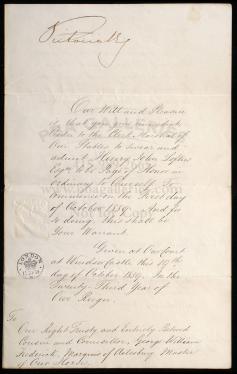 Victoria R
Our Will and Pleasure
is that you give immediate
Order to the Clerk Marshal of
Our Stables to swear and
admit Henry John Loftus
Esqre to be Page of Honor in
ordinary to Ourself
Commence on the First day
of October 1859. And for
so doing, this shall be
Your Warrant.
Given at Our Court
at Windsor Castle this 19th
day of October 1859. In the
Twenty Third Year of
Our Reign.
To
Our Right Trusty and Entirely Beloved
Cousin and Councillor, George William
Frederick, Marquess of Ailesbury Master
of Our Horse.